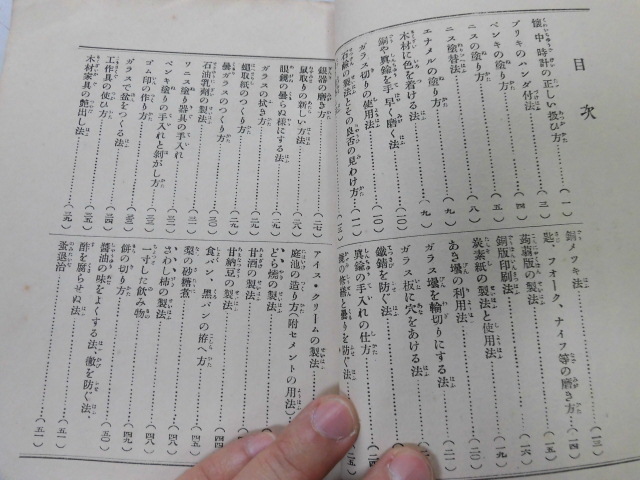 目次
懐中時計の正しい扱ひ方…(一)
ブリキのハンダ付法…(三)
ペンキの塗り方…(五)
ニスの塗り方…(八)
ニス塗替法…(九)
エナメルの塗り方…(九)
木材に色を着ける法…(一〇)
銅や真鍮を手早く磨く法
ガラス切りの使用法
の製法とその良否の見わけ方
匙、フォーク、ナイフ等の磨き方…(一四)
蒟蒻版の製法…(一五)
銅版印刷法…(一六)
炭素紙の製法と使用法…(一九)
あき壜の利用法
ガラス壜を輪切りにする法…(二一)
ガラス板に穴をあける法
鐵錆を防ぐ法
真鍮の手入れの仕方
銀器の磨き方…(二七)
鼠取りの新しい方法
眼鏡の曇らぬ様にする法
ガラスの拭き方
蠅取紙のつくり方
曇ガラスのつくり方
石油乳劑の製法
ワニス塗り器具の手入れ
ペンキ塗りの手入れと剝がし方
ゴム印の作り方
ガラスで盆をつくる法
工作具の使ひ方…(三四)
木材家具の艶出し法…(三九)
アイス・クリームの製法
庭池の造り方(附セメントの用法)
どら燒の製法
甘酒の製法
甘納豆の製法
食パン、黒パンの拵へ方
栗の砂糖煮…(四五)
さわし柿の製法…(四八)
一寸した飲み物…(四八)
餅の切り方…(四九)
醬油の味をよくする法、黴を防ぐ法…(五〇)
酢を腐らせぬ法
蚤退治…(五一)